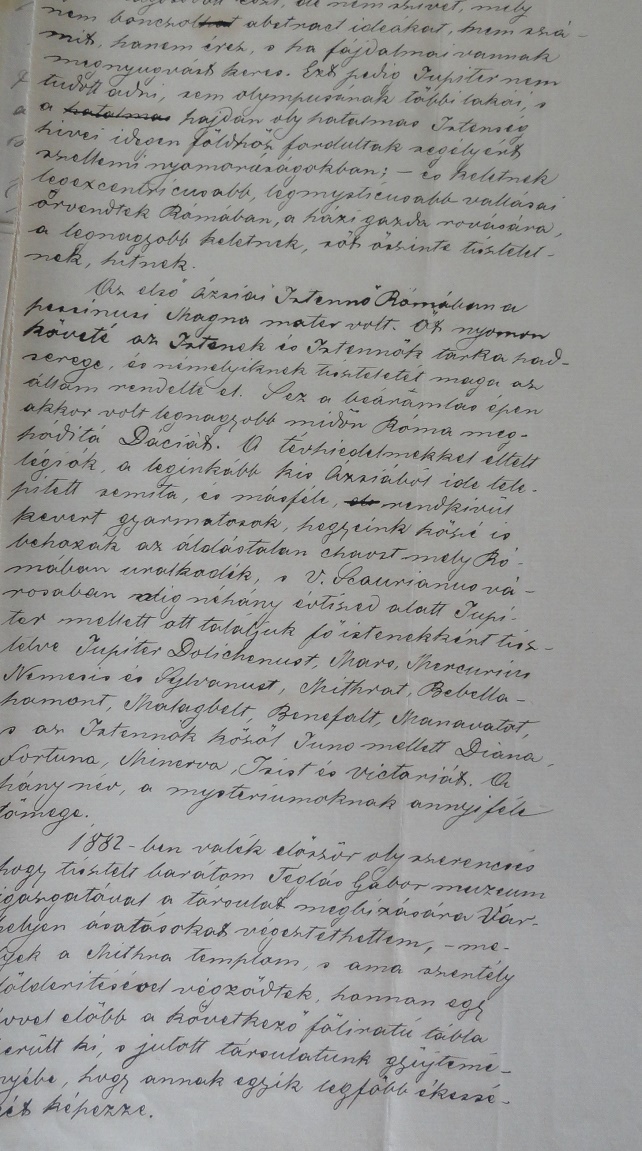 nem bonczolhat abstract ideákat, nem szá-
mit, hanem érez, s ha fájdalmai vannak
megnyugvást keres. Ezt pedig Jupiter nem
tudott adni, sem olympusának többi lakói, s
a hatalmas hajdan oly hatalmas Istenség
hivei idegen földhöz fordultak segélyért
szellemi nyomorúságokban; – és keletnek
legexcentricusabb, legmysticusabb vallásai
örvendtek Rómában, a házi gazda rovására,
a legnagyobb keletnek, sőt őszinte tisztelet-
nek, hitnek.
Az első ázsiai Istennő Rómában a
pessinusi Magna mater volt. Őt nyomon
követé az Istenek és Istennők tarka had-
serege, és némelyiknek tiszteletét maga az
állam rendelte el. S ez a beáramlás épen
akkor volt legnagyobb midőn Róma meg-
hóditá Dáciát. A tévhiedelmekkel eltelt
légiók, a leginkább kis Ázsiából ide tele-
pitett semita, és másféle, rendkivül
kevert gyarmatosok, hegyeink közé is
behozák az áldástalan chaost mely Ró-
mában uralkodék, s V. Scaurianus vá-
rosában alig néhány évtized alatt Jupi-
ter mellett ott találjuk fő istenekként tisz-
telve Jupiter Dolichenust, Mars, Mercurius
Nemesis és Sylvanust, Mithrat, Bebella-
hamont, Malagbelt, Benefalt, Manavatot,
s az Istennők közöl Juno mellett Diana,
Fortuna, Minerva, Isist és Victoriát. A
hány név, a mysteriumoknak annyiféle
tömege.
1882-ben valék először oly szerencsés
hogy tisztelt barátom Téglás Gábor muzeum
igazgatóval a társulat megbizására Vár-
helyen ásatásokat végeztethettem, – me-
lyek a Mithra templom, s ama szentély
földeritésével végződtek, honnan egy
évvel előbb a következő föliratú tábla
került ki, s jutott társulatunk gyűjtemé-
nyébe, hogy annak egyik legfőbb ékessé-
gét képezze.